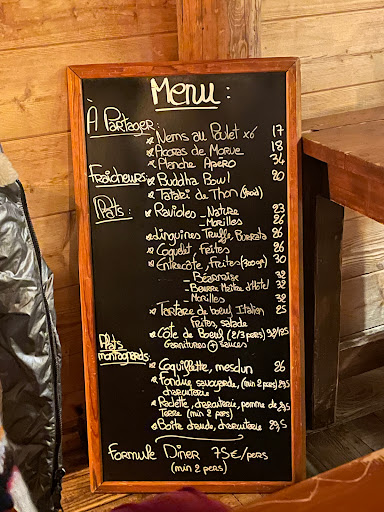 Menu :
À Partager:
* Nems au Poulet x6 17
* Accras de Morue 18
* Planche Apéro 34
Fraîcheurs:
* Buddha Bowl 20
* Tataki de Thon (froid)
Plats:
* Ravioles - Nature 23
- Morilles 26
* Linguines Truffe, Burrata 26
* Coquelet, Frites 26
* Entrecôte, Frites (300gr) 30
- Béarnaise 32
- Beurre Maître d'Hôtel 32
- Morilles 38
* Tartare de boeuf Italien 25
Frites, salade
* Côte de Boeuf (2/3 pers)
Garnitures + sauces
Plats montagnards:
* Coquillette, mesclun 26
* Fondue savoyarde, (min 2 pers) 29,5
charcuterie
* Raclette, charcuterie, pomme de
Terre (min 2 pers)
* Boîte chaude, charcuterie 29,5
Formule Dîner 75€/pers
(min 2 pers)